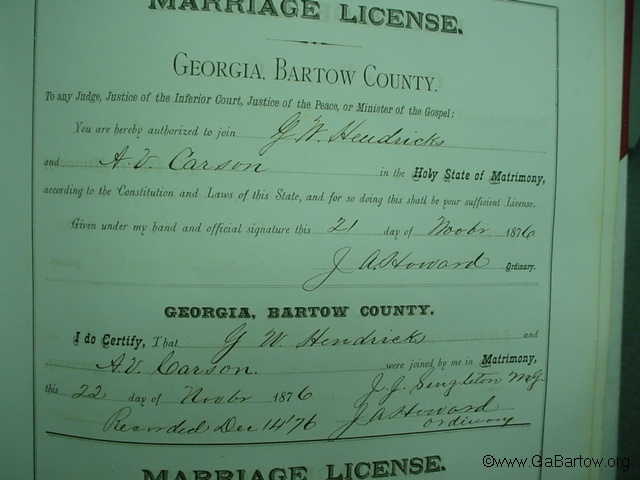 MARRIAGE LICENSE.
GEORGIA, BARTOW COUNTY.
To any Judge, Justice of the Inferior Court, Justice of the Peace, or Minister of the Gospel:
You are hereby authorized to join G. W. Hendricks
and A. V. Carson in the Holy State of Matrimony,
according to the Constitution and Laws of this State, and for so doing this shall be your sufficient License.
Given under my hand and official signature this 21 day of Novbr 1876
J A Howard Ordinary.
GEORGIA, BARTOW COUNTY.
I do Certify, That G W. Hendrick and
A. V. Carson. were joined by me in Matrimony,
this 22 day of Novbr 1876 J. J. Singleton M.G.
Recorded Dec 14 '76 J A Howard
Ordinary
MARRIAGE LICENSE.
©www.GaBartow.org